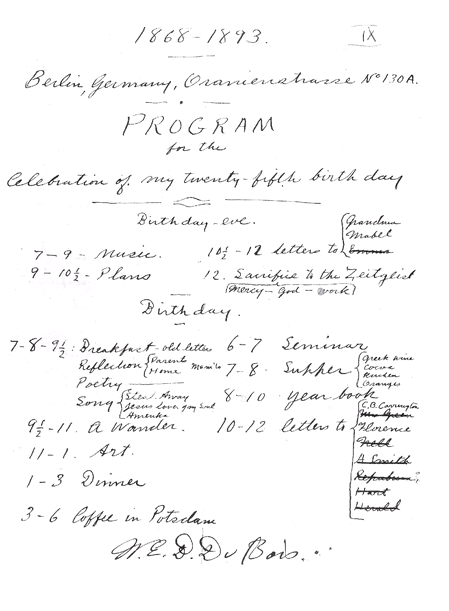 1868-1893.
IX
Berlin, Germany, Oranienstrasse No 130A.
PROGRAM
for the
Celebration of my twenty-fifth birthday
Birthday-eve.
7-9 - Music.
9-10½ - Plans
10½-12 letters to
Grandma
Mabel
Emma
12. Sacrifice to the Zeitgeist
Mercy - God - Work
Birthday.
7-8-9½: Breakfast - old letter
Reflection
Parents
Home
Poetry
Song
Steal Away
Jesus Lover of my Soul
America
9½-11. A Wander.
11-1. Art.
1-3 Dinner
3-6 Coffee in Potsdam
6-7 Seminar
7-8. Supper
Greek wine
Cocoa
Kuchen
Oranges
8-10. Year book
10-12 letters to
C.B. Carrington
Mrs Green
Florence
Nell
A Smith
Republican?
Hart
Herald
W. E. B. Du Bois.